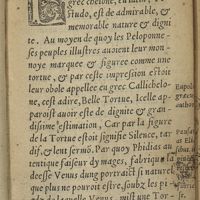 grec chelone, en latin, Te
studo, est de admirable, &
memorable nature & digni
te. Au moyen de quoy les Peloponne-
ses peuples illustres auoient leur mon-
noye marquee & figuree comme vne
tortue, & par ceste impression estoit
leur obole appellee en grec Callichelo-
ne, cest adire, Belle Tortue, Icelle ap-
paroist auoir este de dignite & gran-
dissime estimation. Car par la figure
de la Tortue estoit signifie Silence, tar
dif, & lent sermō. Par quoy Phidias au
tentique faiseur dy mages, fabriqua la
deesse Venus dung portraict si naturel
que plus ne pourroit estre, soubz les pi
de laquelle Venus, mist vne Tor-